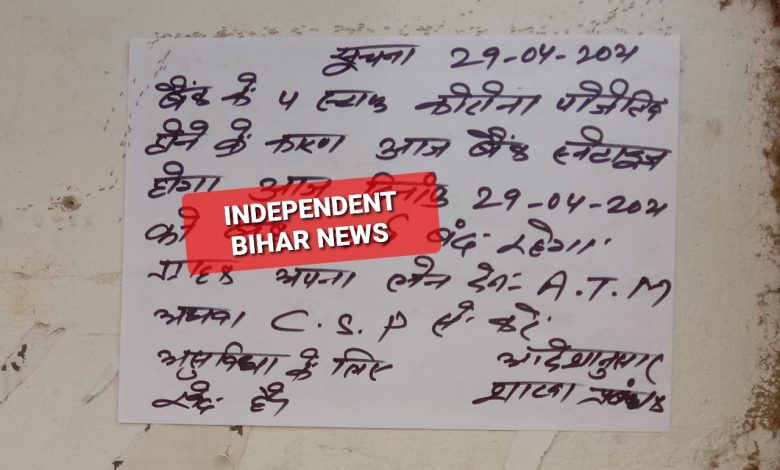 सूचना 29-04-2021
बैंक के 4 स्टाफ कोरोना पोजेटिव
होने के कारण आज बैंक सेनेटाइज
होगा आज दिनांक 29-04-2021
को बंद रहेगा।
ग्राहक अपना लेन देन A.T.M
अथवा C.S.P से करें
असुविधा के लिए आदेशानुसार
खेद है शाखा प्रबंधक
INDEPENDENT
BIHAR NEWS